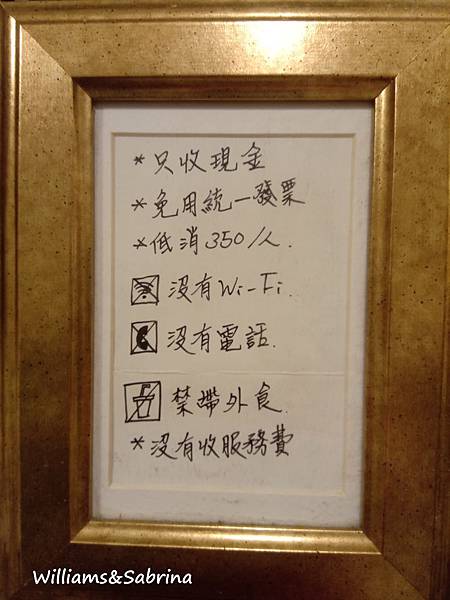 *只收現金
*免用統一發票
*低消350/人.
沒有Wi-Fi.
沒有電話.
禁帶外食.
*沒有收服務費
Williams&Sabrina